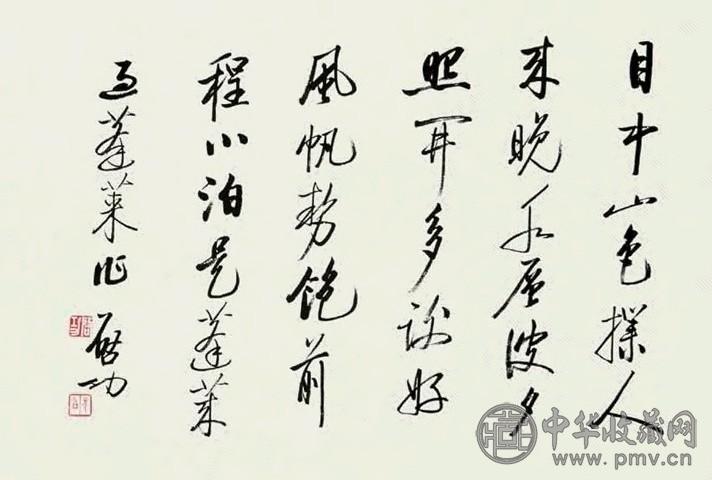 目中山色撲人
来晚水層波夕
照開多謝好
風帆勢飽前
程小泊是蓬萊
過蓬萊作
啟功
中华收藏网
www.pmv.cn